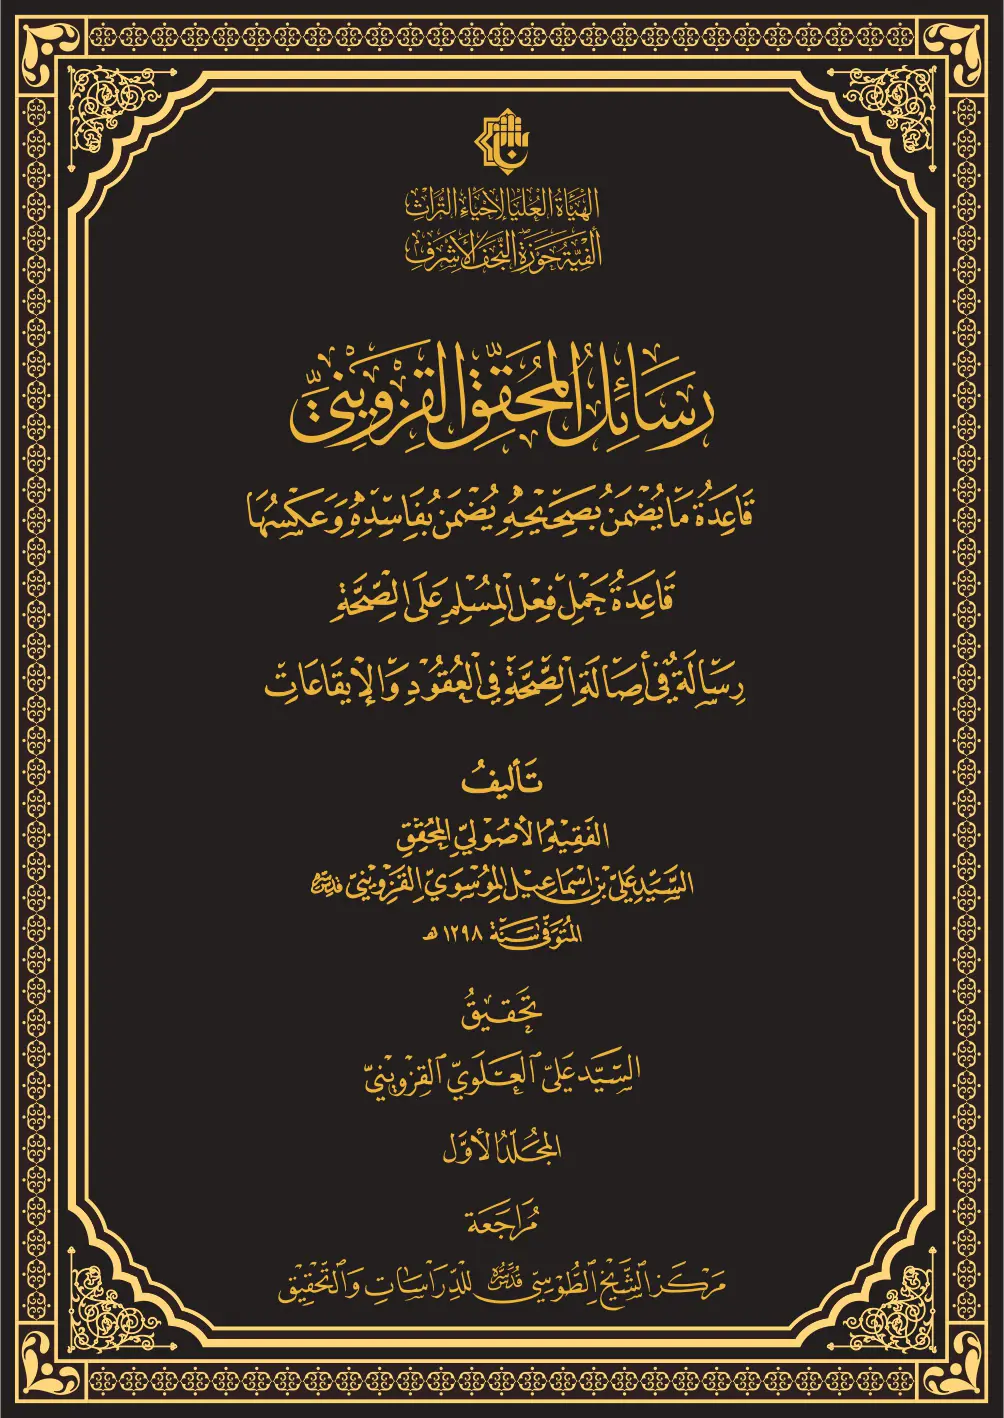 الهيأة العليا لإحياء التراث
ألفية حوزة النجف الأشرف
رَسَائِلُ المُحَقِّقِ القَزْوِينِيِّ
قَاعِدَةُ مَا يُضْمَنُ بِصَحِيحِهِ يُضْمَنُ بِفَاسِدِهِ وَعَكْسُهَا
قَاعِدَةُ حَمْلِ فِعْلِ المُسْلِمِ عَلَى الصِّحَّةِ
رِسَالَةٌ فِي أَصَالَةِ الصِّحَّةِ فِي العُقُودِ وَالإِيقَاعَاتِ
تَأليفُ
الفَقِيهِ الأُصُوليِّ المُحَقِّقِ
السَّيِّدِ عَلِيِّ بْنِ إِسْمَاعِيل المُوسَوِيِّ القَزْوِينِيِّ قدس سره
المُتَوَفَّى سَنَة ١٢٩٨ هـ
تَحقيقُ
السَّيِّد عَلِيّ العَلَوِيّ القَزْوِينِيّ
المُجَلَّدُ الأَوَّل
مُرَاجَعَة
مَرْكَز الشَّيْخ الطُّوسِيّ قدس سره لِلدِّرَاسَاتِ وَالتَّحْقِيقِ